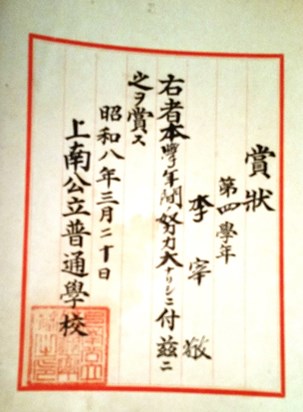 賞狀
第四學年
李宰敬
右者本學年間ノ努力大ナリシニ付茲ニ
之ヲ賞ス
昭和八年三月二十日
上南公立普通學校